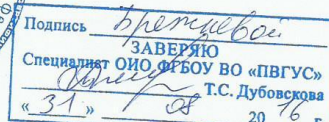 Подпись Брежневой
ЗАВЕРЯЮ
Специалист ОИО ФГБОУ ВО «ПВГУС»
Т.С. Дубовскова
« 31 » 08 2016 г.